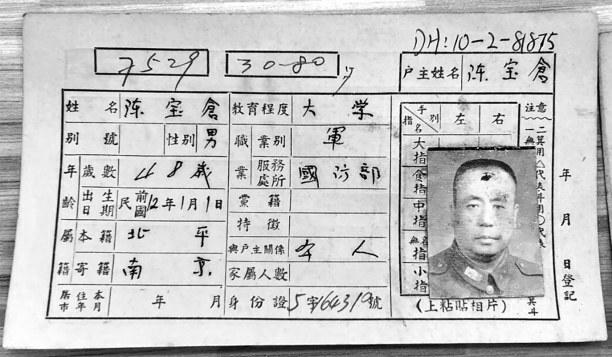 DH:10-2-81875
7529
30-80
戶主姓名 陈宝倉
姓名 陈宝倉
教育程度 大学
別號
性別 男
職業別 軍
年齡
歲數 48歲
業 服務處所 國防部
出生日期 民國前12年1月1日
黨籍
屬籍
本籍 北平
特徵
與戶主關係 本人
寄籍 南京
家屬人數
居住本市年月 年 月
身份證 5字164319號
指名 手別 左 右
大指
食指
中指
無名指
小指
(上粘貼相片)
注意
年 月 日登記